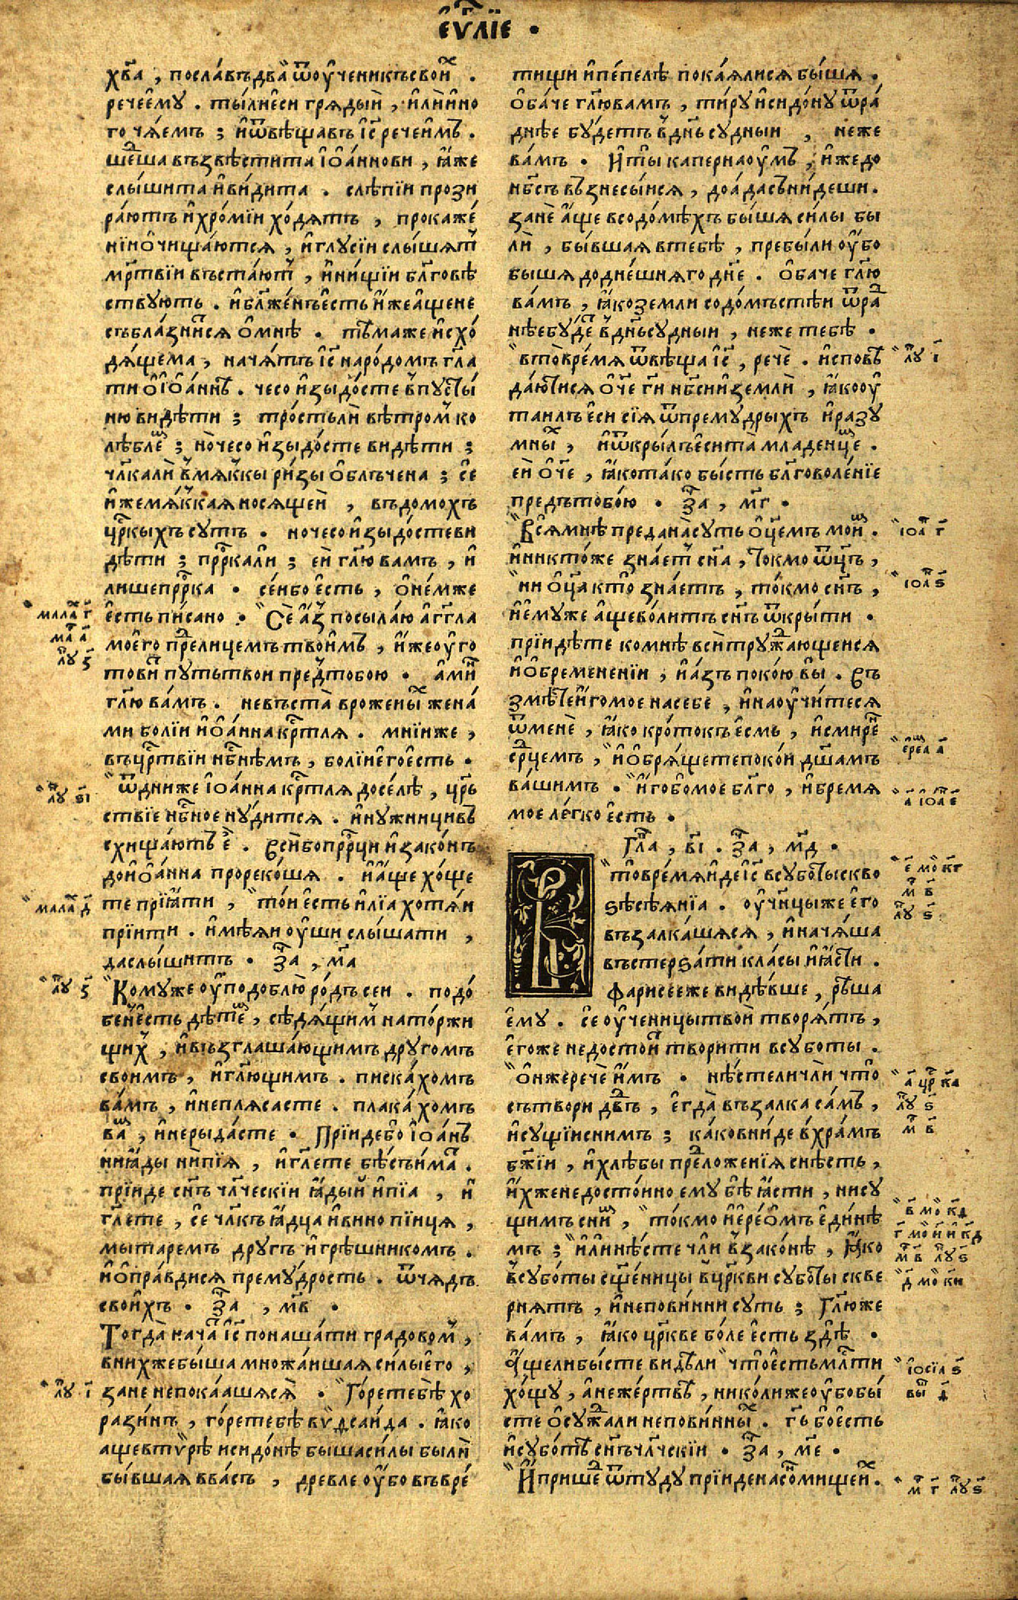 еѵⷢ҇лїе .
хв҃а , пославъ два ѿ оученикъ свои́хъ .
рече ему . ты ли еси грядый , или ино
го чяемъ ; и ѿвѣщавъ і҃с рече имъ .
шедша възвѣстита іоаннови , ꙗже
слышита и видита . слѣпїи прози
раютъ и хромїи ходятъ , прокаже
нїи очищаются , и глусїи слышятъ
мр҃твїи въстаютъ , и нищїи бл҃говѣ
ствуютъ . и бл҃женъ есть иже аще не
съблазнится о мнѣ . тѣмаже исхо
дящема , начятъ і҃с народомъ гл҃а
ти о іоаннѣ . чесо изыдосте в пусты
ню видѣти ; трость ли вѣтромъ ко
лѣблему ; но чесо изыдосте видѣти ;
чл҃ка ли в мякъкы ризы облъчена ; се
иже мякъкая носящеи , въ домохъ
цр҃кыхъ суть . но чесо изыдосте ви
дѣти ; пр҃рка ли ; еи гл҃ю вамъ , и
лишеп҃ррка . сеи бо есть , о немже
есть писано . Се азъ посылаю аг҃гла
моего пред лицемъ твоимъ , иже оуго
товитъ путь твои пред тобою . аминь
гл҃ю вамъ . не въста в рожены́хъ жена
ми болїи иоанна кр҃тля . мнїи же ,
въ цр҃твїи нб҃нѣмъ , болїи его есть .
ѿ днїи же іоанна кр҃тля доселѣ , цр҃ь
ствїе нб҃ное нудится . и нужницивъ
схищаютъ е . Вси бо пр҃рци и законъ
до иоанна прорекошя . и аще хоще
те прїꙗти , тои есть илїа хотяи
прїити . имѣяи оуши слышати ,
да слышитъ . За , ма
Кому же оуподоблю родъ сеи . подо
бенъ есть дѣтемъ , сѣдящимъ на торжи
щихъ , и възглашающимъ другомъ
своимъ , и гл҃ющимъ . пискахомъ
вамъ , и не плясасте . плакахомъ
вамъ , и не рыдасте . Прїиде бо іоанъ
ни ꙗды ни пїя , и гл҃ете бѣсъ имать .
прїиде сн҃ъ чл҃ческїи ꙗдый и пїа , и
гл҃ете , се чл҃къ ꙗдца и винопїица ,
мытаремъ другъ и грѣшникомъ .
и оправдися премудрость . ѿ чядъ
своихъ . За , мв .
Тогда начатъ і҃с поношати градовомъ ,
в нихже быша множаишая силы его ,
зане не покаашяся . Горе тебѣ хо
разинъ , горе тебѣ видсаида . ꙗко
аще в тѵрѣ и сидонѣ быша силы были
бывшая в васъ , древле оубо въ вре
тищи и пепелѣ покаялися бышя .
Обаче гл҃ю вамъ , тиру и сидону ѿра
днѣе будетъ в дн҃ь судныи , неже
вамъ . И ты капернаоумъ , иже до
нб҃съ възнесыися , до ада сънидеши .
зане аще в содомѣхъ бышя силы бы
ли , бывшая в тебѣ , пребыли оубо
бышя до днешняго дн҃е . Обаче гл҃ю
вамъ , ꙗко земли содомъстѣи ѿра
нѣе будетъ в дн҃ь судныи , неже тебѣ .
в то время ѿвѣща і҃с , рече . исповѣ
даютися о҃че г҃и нб҃си и земли , ꙗко оу
таилъ еси сїя ѿ премудрыхъ и разу
мны́хъ , и ѿкрылъ еси та младенцемъ .
еи о҃че , ꙗко тако бысть бл҃говоленїе
предъ тобою . За , мг .
Вся мнѣ предана суть о҃цемъ моимъ .
и никтоже знаетъ сн҃а , токмо ѿц҃ъ ,
ни о҃ца кто знаетъ , токмо сн҃ъ ,
и емуже аще волитъ сн҃ъ ѿкрыти .
прїидѣте ко мнѣ вси тружающеися
и обремененїи , и азъ покою вы . Въ
змѣте иго мое на себе , и наоучитеся
ѿ мене , ꙗко кротокъ есмь , и смиренъ
ср҃цемъ , и обрящете покои дш҃амъ
вашимъ . иго бо мое бл҃го , и бремя
мое легко есть .
Гла , в҃і . За , мд .
В то время иде і҃с в суботы скво
ѕѣ сѣянїа . оученицы же его
възалкашяся , и начяша
въстерѕати класы и ꙗсти .
фарисее же видѣвше , рѣша
ему . се оученицы твои творятъ ,
егоже не достоитъ творити в суботы .
Он же рече имъ . нѣсте ли чли что
сътвори дв҃дъ , егда възалка самъ ,
и сущїи с нимъ ; како вниде в храмъ
бж҃їи , и хлѣбы предложенїя снѣсть ,
ихже не достоино ему бѣ ꙗсти , ни су
щимъ с нимъ , токмо иереомъ единѣ
мъ ; или нѣсте чли в законѣ , ꙗко
в суботы сщ҃еницы в цр҃кви суботы скве
рнятъ , и неповинни суть ; Гл҃ю же
вамъ , ꙗко цр҃кве боле есть здѣ .
Аще ли бысте видѣли что есть мл҃ти
хощу , а не жертвѣ , николиже оубо бы
сте осужали неповинны́хъ . г҃ь бо есть
и суботѣ сн҃ъ чл҃ческїи . За , ме .
И пришед ѿтуду прїиде на сонмище ихъ .